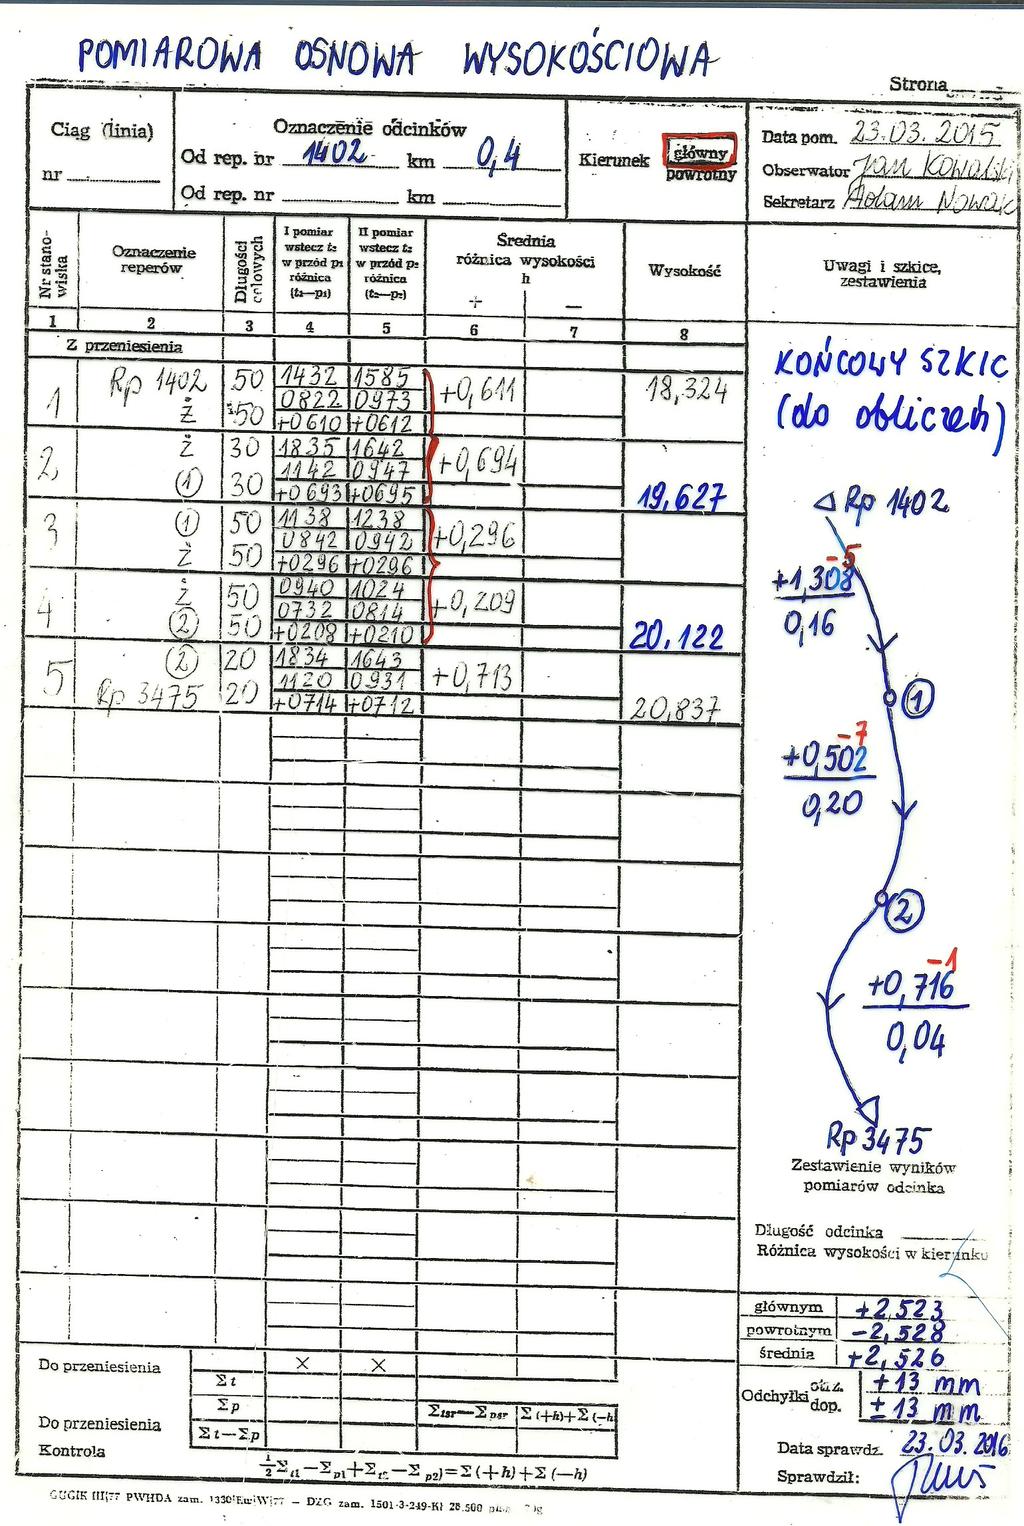 POMIAROWA OSNOWA WYSOKOŚCIOWA
Strona
Ciąg (linia)
nr
Oznaczenie odcinków
Od rep. nr 1402 km 0,4
Od rep. nr km
Kierunek
główny
powrotny
Data pom. 23.03.2015
Obserwator Jan Kowalski
Sekretarz Adam Nowak
Nr stano-wiska
Oznaczenie reperów
Długości celowych
I pomiar wstecz t₁ w przód p₁ różnica (t₁—p₁)
II pomiar wstecz t₂ w przód p₂ różnica (t₂—p₂)
Średnia różnica wysokości h
+ —
Wysokość
Uwagi i szkice, zestawienia
1 2 3 4 5 6 7 8
Z przeniesienia
1 Rp 1402 50 1432 1585 +0,611 18,324
ż 50 0822 0973
+0610 +0612
2 ż 30 1835 1642 +0,694
① 30 1142 0947
+0693 +0695 19,627
3 ① 50 1138 1238 +0,296
ż 50 0842 0942
+0296 +0296
4 ż 50 0940 1024 +0,209
② 50 0732 0814
+0208 +0210 20,122
5 ② 20 1834 1643 +0,713
Rp 3475 20 1120 0931
+0714 +0712 20,837
KOŃCOWY SZKIC
(do obliczeń)
Rp 1402
-5
+1,308
0,16
①
-7
+0,502
0,20
②
-1
+0,716
0,04
Rp 3475
Zestawienie wyników
pomiarów odcinka
Długość odcinka
Różnica wysokości w kierunku
głównym +2,523
powrotnym -2,528
średnia +2,526
Odchyłki otrz. +13 mm
dop. ±13 mm
Data sprawdz. 23.03.2016
Sprawdził:
Do przeniesienia × ×
Σt
Σp Σtsr—Σpsr Σ(+h)+Σ(—h)
Do przeniesienia
Σt—Σp
Kontrola
½Σt1—Σp1+Σt2—Σp2)=Σ(+h)+Σ(—h)